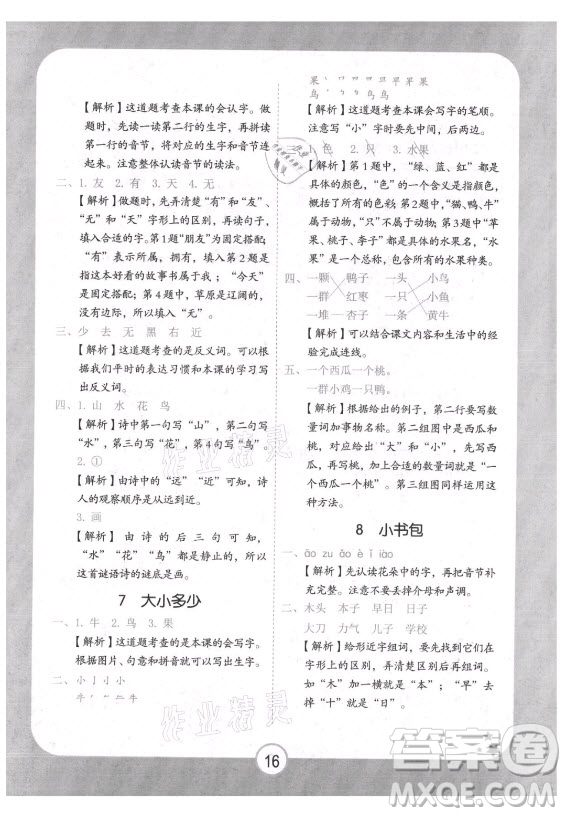 【解析】这道题考查本课的会认字。做
题时，先读一读第二行的生字，再拼读
第一行的音节，将对应的生字和音节连
起来。注意整体认读音节的读法。
二、1. 友 2. 有 3. 天 4. 无
【解析】做题时，先弄清楚“有”和“友”、
“无”和“天”字形上的区别，再读句子，
填入合适的字。第1题“朋友”为固定搭
配，“有”表示所属关系，所以第2题
填入后是指我有好看的故事书属于我；“今天”
是固定搭配；第4题中，草原是辽阔的，
没有边际，所以填入“无”。
三、少 去 无 黑 右 近
【解析】这道题考查的是反义词。可以
根据我们平时的表达习惯和本课的学习写
出反义词。
四、1. 山 水 花 鸟
【解析】诗中第一句写“山”，第二句写
“水”，第三句写“花”，第4句写“鸟”。
2. ①
【解析】由诗中的“远”“近”可知，诗
人的观察顺序是从远到近。
3. 画
【解析】由诗的后三句可知，
“水”“花”“鸟”都是静止的，所以
这首谜语诗的谜底是画。
7 大小多少
一、1. 牛 2. 鸟 3. 果
【解析】这道题考查的是本课的会写字。
根据图片、句意和拼音就可以写出它们。
二、小
牛
果
鸟
【解析】这道题考查本课会写字的笔顺。
注意写“小”字时要先中间，后两边。
三、1. 色 2. 只 3. 水果
【解析】第1题中，“绿、蓝、红”都是
具体的颜色，“色”是一个总称，指颜色，
包含了所有的色彩；第2题中“猫、鸭、牛”
属于动物，“只”不属于动物；第3题中“苹
果、桃子、李子”都是具体的水果名，“水
果”是一个总称，包含所有具体的水果。
四、一颗 鸭子 一头 小鸟
一群 红枣 一只 小鱼
一堆 杏子 一条 黄牛
【解析】可以结合课文内容和生活中的经
验完成连线。
五、一个西瓜一个桃。
一群小鸡一只鸭。
【解析】根据给出的例子，第二行要写数
量词加事物名称。第二组图中是西瓜和
桃，开头给出“大”和“小”，我们只需
给后面加上合适的数量词就是“一个西
瓜一个桃”。第三组图同样运用这种方法。
8 小书包
一、āo zu ǎo è ǐ iào
【解析】先认读花朵中的字，再把音节补
充完整。注意不要丢掉介母和声调。
二、木头 本子 早日 日子
大刀 力气 儿子 学校
【解析】给形近字组词，要弄清楚它们在
字形上的区别，再写出正确的词语。
如“木”加一横就是“本”；“早”去
掉“十”就是“日”。
16
作业精灵
作业精灵
答案圈
MXQE.COM